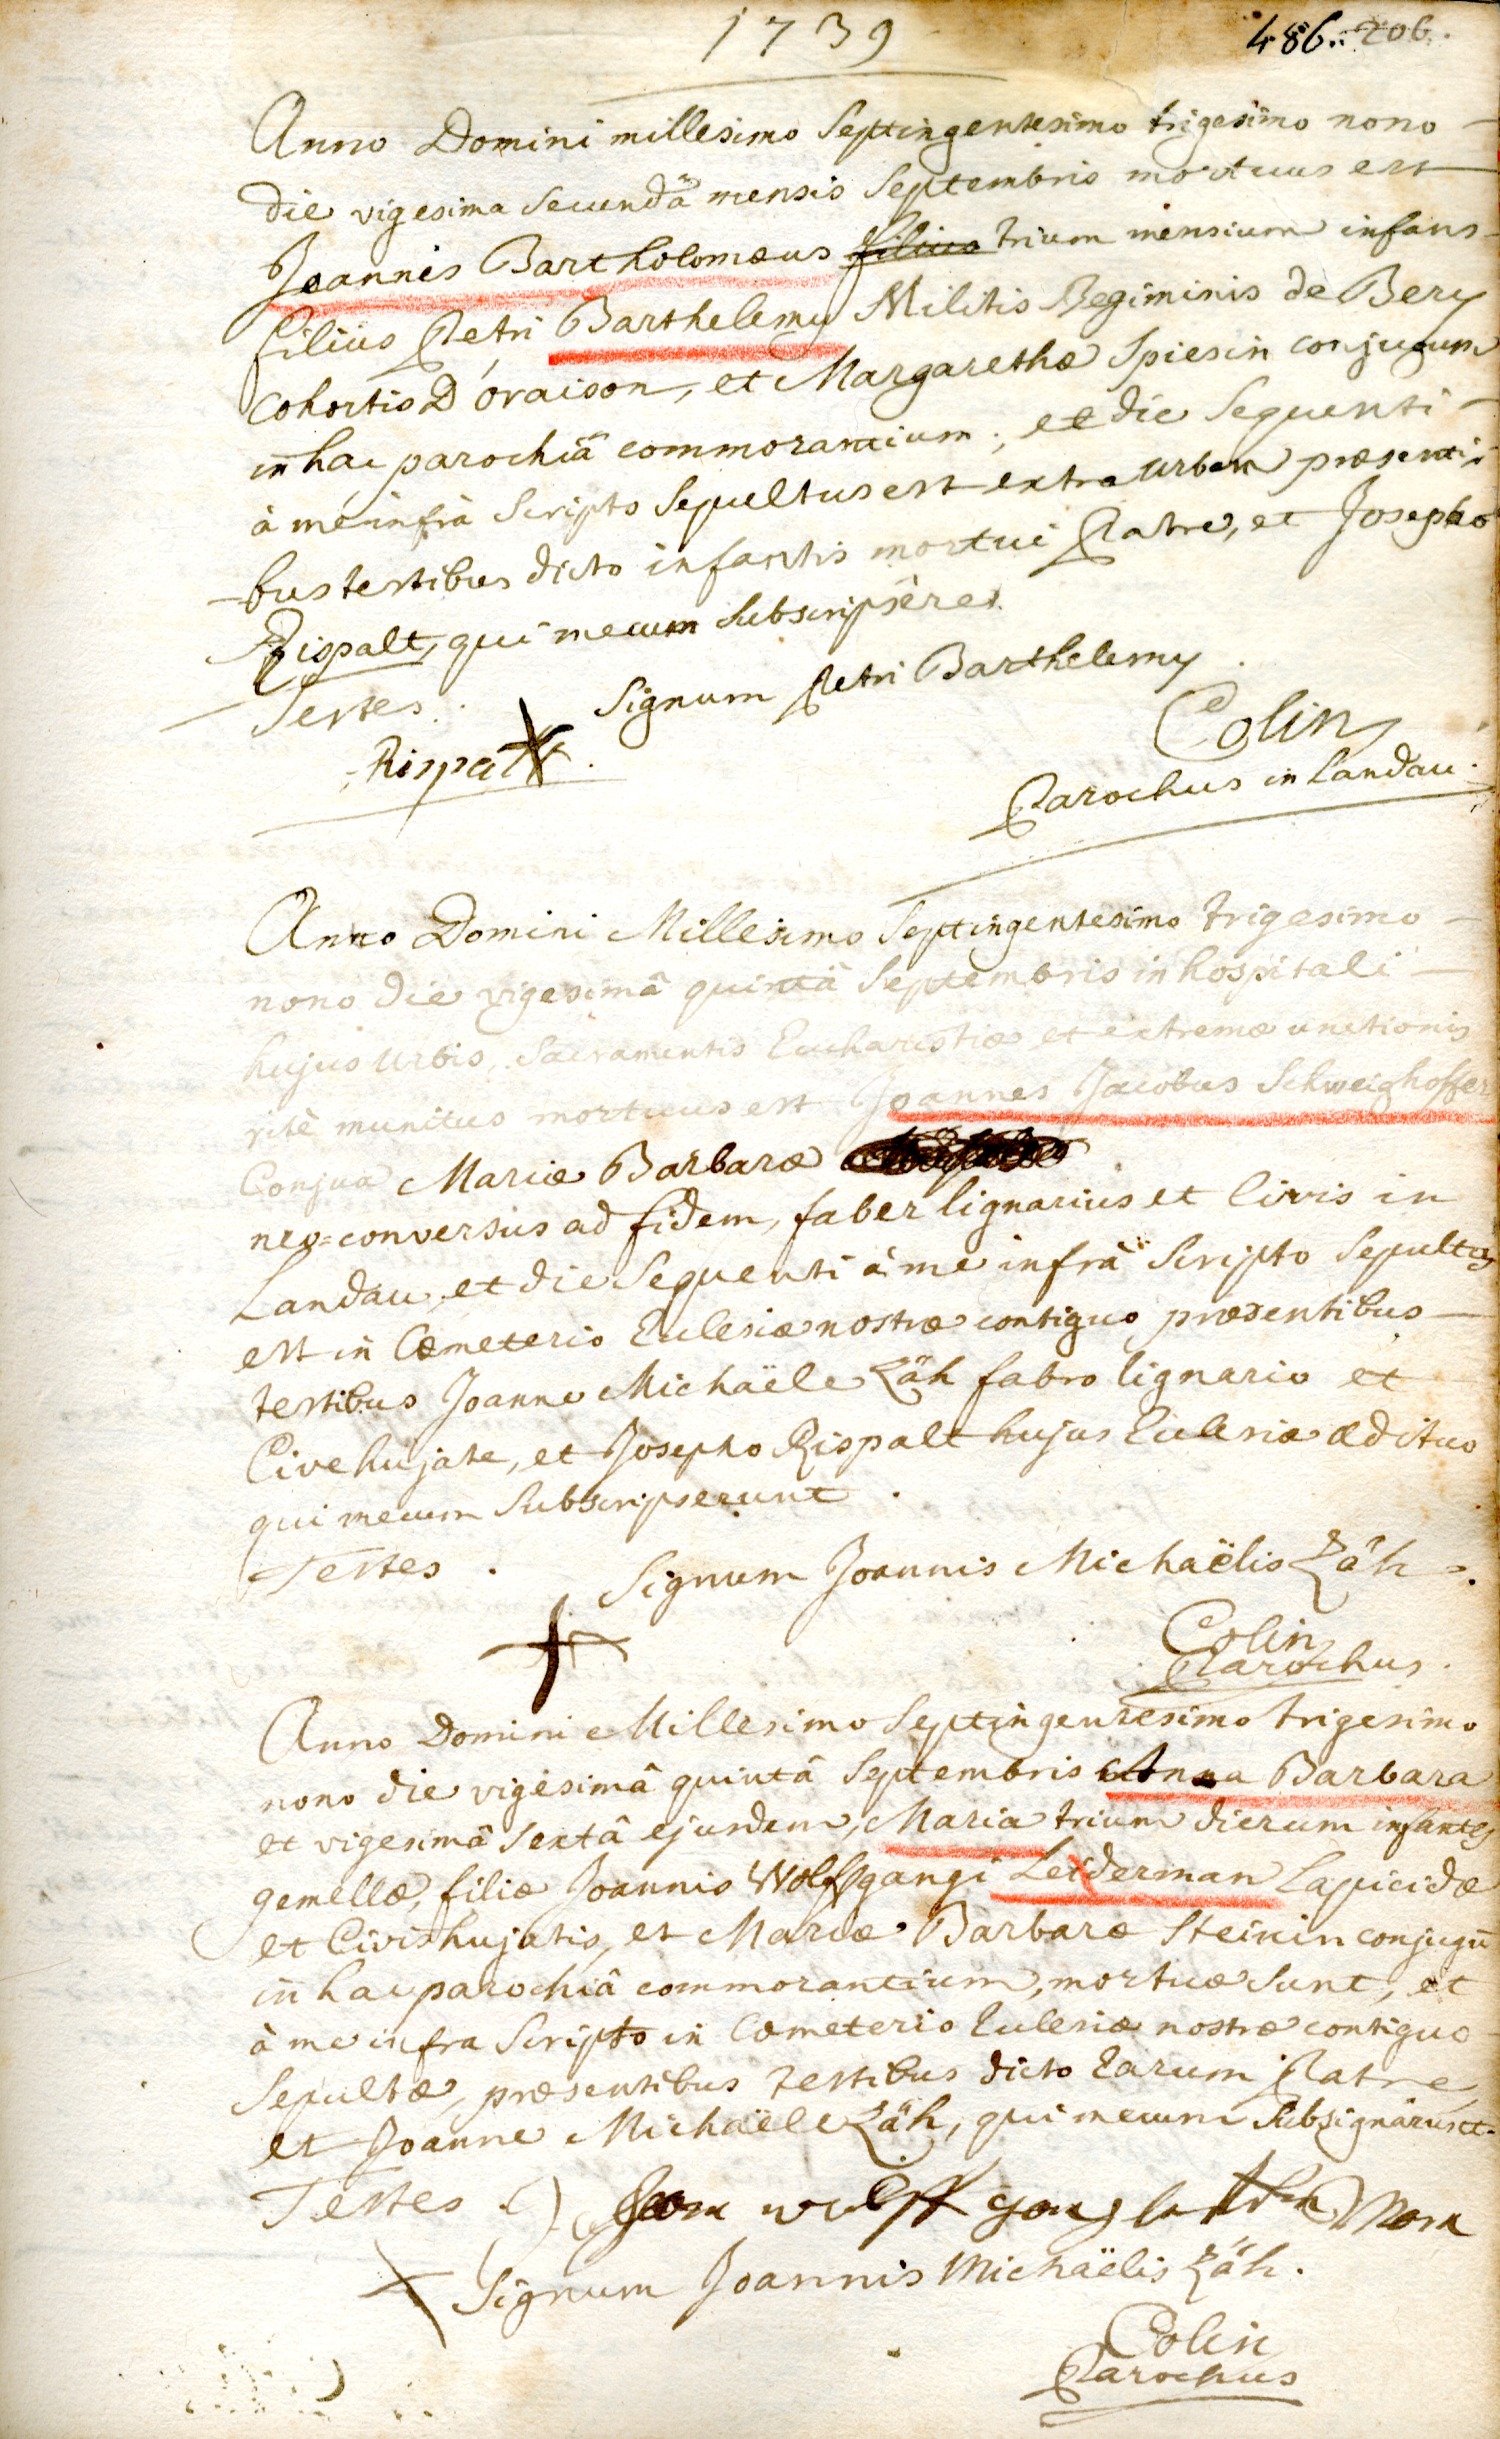 1739
486. 206.
Anno Domini millesimo Septingentesimo trigesimo nono
die vigesima secundâ mensis Septembris mortuus est
Joannes Bartholomæus filius trium mensium infans
filius Petri Barthelemy Militis Regiminis de Bery
cohortis D'oraison, et Margarethæ Spiesin conjugum
in hac parochiâ commorantium; et die sequenti
à me infrà scripto sepultus est extra urbem præsenti-
-bus testibus dicto infantis mortui Patre, et Josepho
Rispalt, qui mecum subscripsêre.
Testes. Signum Petri Barthelemy
Rispalt
Colin
Parochus in Landau.
Anno Domini Millesimo Septingentesimo trigesimo
nono die vigesimâ quintâ Septembris in hospitali
hujus urbis, Sacramentis Eucharistiæ et extremæ unctionis
ritè munitus mortuus est Joannes Jacobus Schweighoffer
Conjux Mariæ Barbaræ
neo=conversus ad fidem, faber lignarius et Civis in
Landau, et die sequenti à me infrà scripto sepultus
est in Cæmeterio Ecclesiæ nostræ contiguo præsentibus
testibus Joanne Michaële Zäh fabro lignario et
Cive hujate, et Josepho Rispalt hujus Ecclesiæ ædituo
qui mecum subscripserunt.
Testes. Signum Joannis Michaëlis Zäh.
Colin
Parochus.
Anno Domini Millesimo Septingentesimo trigesimo
nono die vigesimâ quintâ Septembris Anna Barbara
et vigesimâ sextâ ejusdem, Maria trium dierum infantes
gemellæ, filiæ Joannis Wolffgangi Leiderman Lapicidæ
et Civis hujatis, et Mariæ Barbaræ Steinin conjugũ
in hac parochiâ commorantium, mortuæ sunt, et
à me infra scripto in Cæmeterio Ecclesiæ nostræ contiguo
sepultæ, præsentibus testibus dicto Earum Patre
et Joanne Michaële Zäh, qui mecum subsignârunt.
Testes
Signum Joannis Michaëlis Zäh.
Colin
Parochus